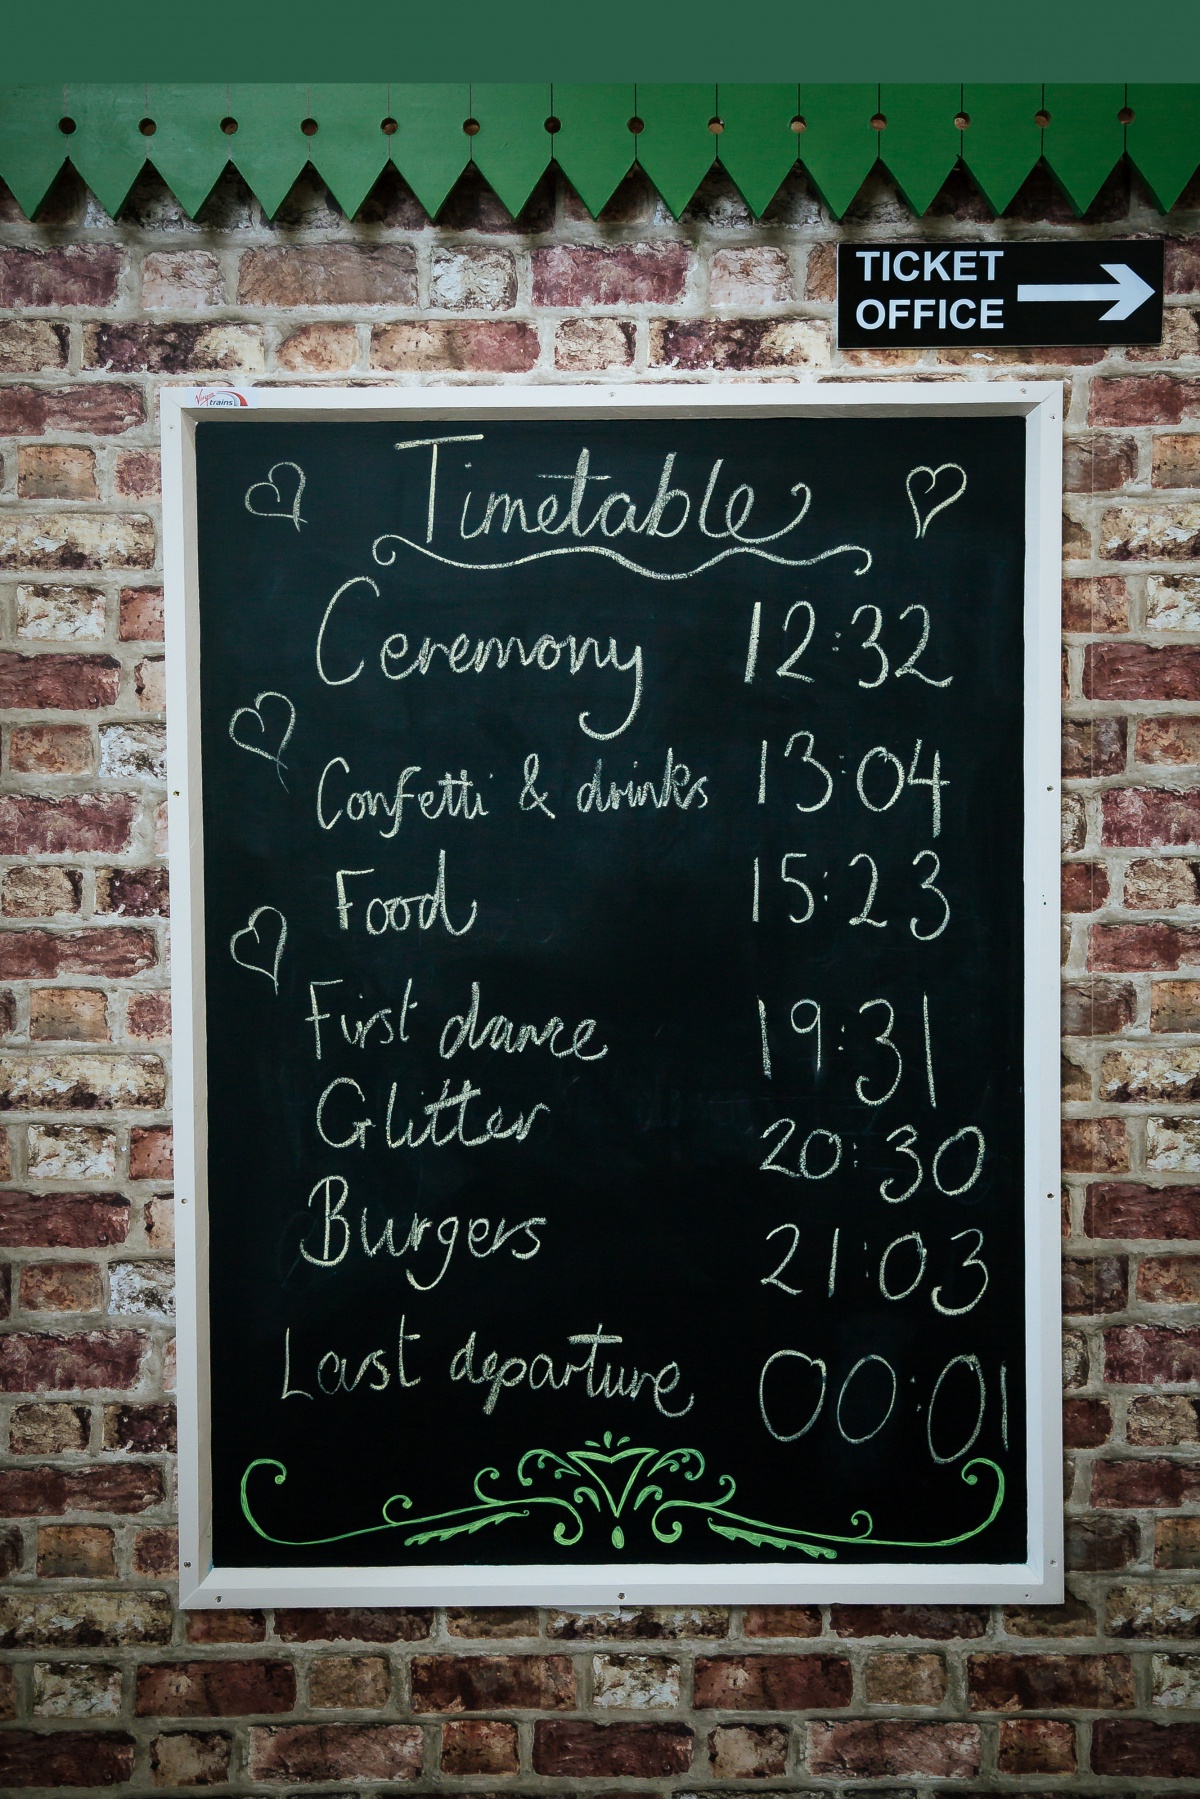 TICKET
OFFICE
Virgin
trains
Timetable
Ceremony 12:32
Confetti & drinks 13:04
Food 15:23
First dance 19:31
Glitter 20:30
Burgers 21:03
Last departure 00:01